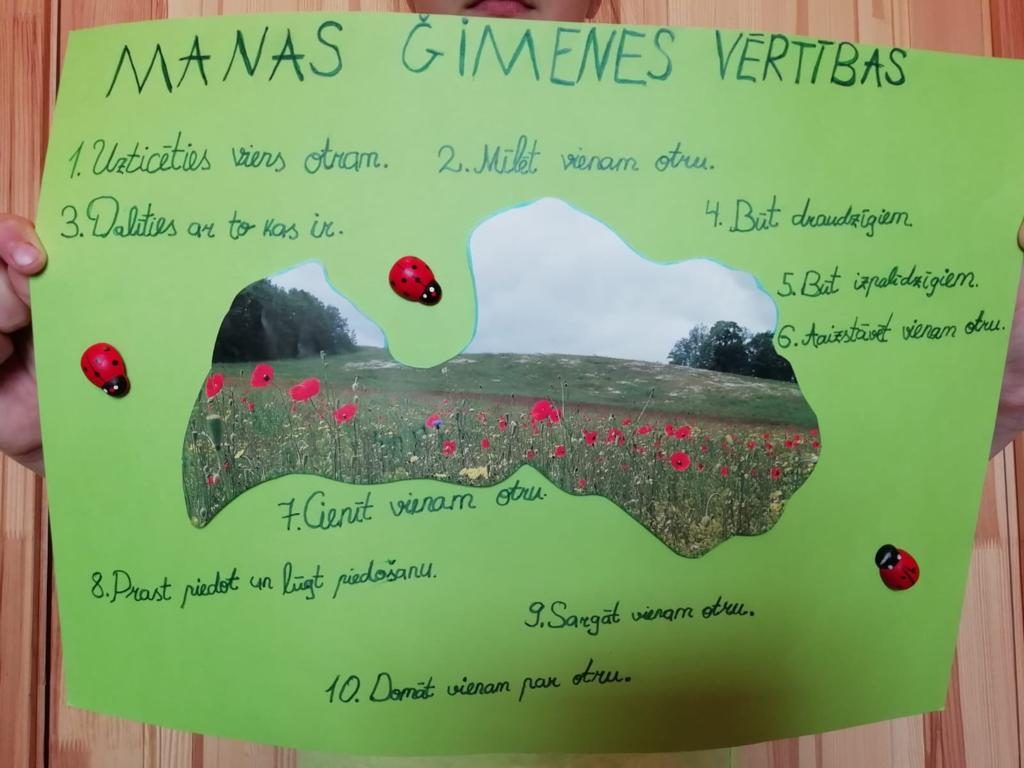 MANAS ĢIMENES VĒRTĪBAS
1. Uzticēties viens otram. 2. Mīlēt vienam otru.
3. Dalīties ar to kas ir.
4. Būt draudzīgiem.
5. Būt izpalīdzīgiem.
6. Aaizstāvēt vienam otru.
7. Cienīt vienam otru.
8. Prast piedot un lūgt piedošanu.
9. Sargāt vienam otru.
10. Domāt vienam par otru.